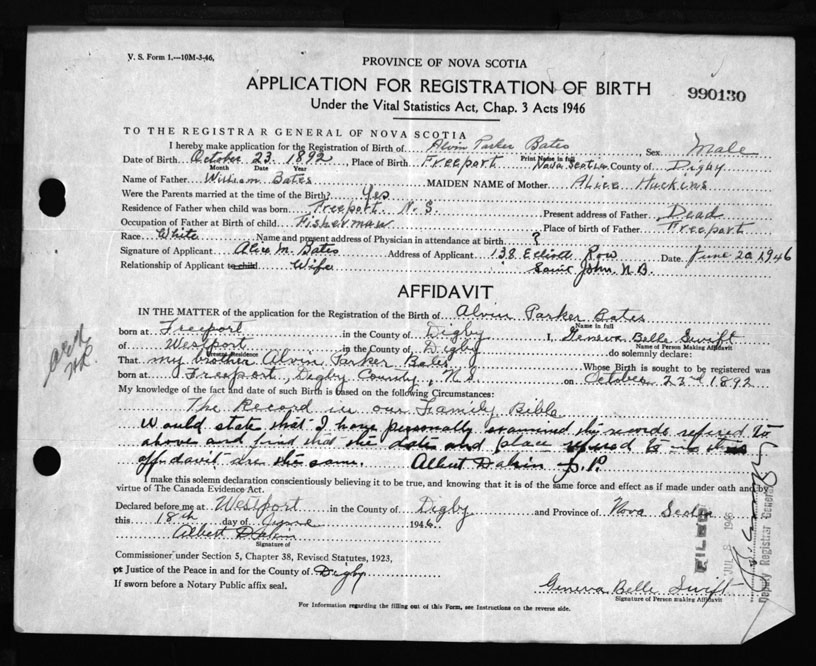 V. S. Form 1.—10M-3-46,
PROVINCE OF NOVA SCOTIA
APPLICATION FOR REGISTRATION OF BIRTH
990130
Under the Vital Statistics Act, Chap. 3 Acts 1946
TO THE REGISTRAR GENERAL OF NOVA SCOTIA
I hereby make application for the Registration of Birth of Alvin Parker Bates Sex Male
Print Name in full
Date of Birth October 23 1892, Place of Birth Freeport Nova Scotia County of Digby
Month Date Year
Name of Father William Bates MAIDEN NAME of Mother Alice Huckins
Were the Parents married at the time of the Birth? Yes
Residence of Father when child was born Freeport N.S. Present address of Father Dead
Occupation of Father at Birth of child Fisherman Place of birth of Father Freeport
Race White Name and present address of Physician in attendance at birth ?
Signature of Applicant Alice M. Bates Address of Applicant 138 Elliott Row Date June 20, 1946
Relationship of Applicant to child Wife Saint John, N.B.
AFFIDAVIT
IN THE MATTER of the application for the Registration of the Birth of Alvin Parker Bates
Name in full
born at Freeport in the County of Digby I, Geneva Belle Swift
Name of Person Making Affidavit
of Westport in the County of Digby do solemnly declare:
Present Residence
That my brother Alvin Parker Bates Whose Birth is sought to be registered was
born at Freeport, Digby County, N.S. on October 23rd 1892
My knowledge of the fact and date of such Birth is based on the following Circumstances:
The Record in our Family Bible
Would state that I have personally examined the records refired to
above and find that the date and place refired to in this
affidavit are the same. Albert Dakin J.P.
I make this solemn declaration conscientiously believing it to be true, and knowing that it is of the same force and effect as if made under oath and by
virtue of The Canada Evidence Act.
Declared before me at Westport in the County of Digby and Province of Nova Scotia
this 18th day of June 1946.
Albert Dakin
Signature of
Commissioner under Section 5, Chapter 38, Revised Statutes, 1923,
or Justice of the Peace in and for the County of Digby
If sworn before a Notary Public affix seal.
Geneva Belle Swift
Signature of Person making Affidavit
FILED
1946
Deputy Registrar General
For Information regarding the filling out of this Form, see Instructions on the reverse side.